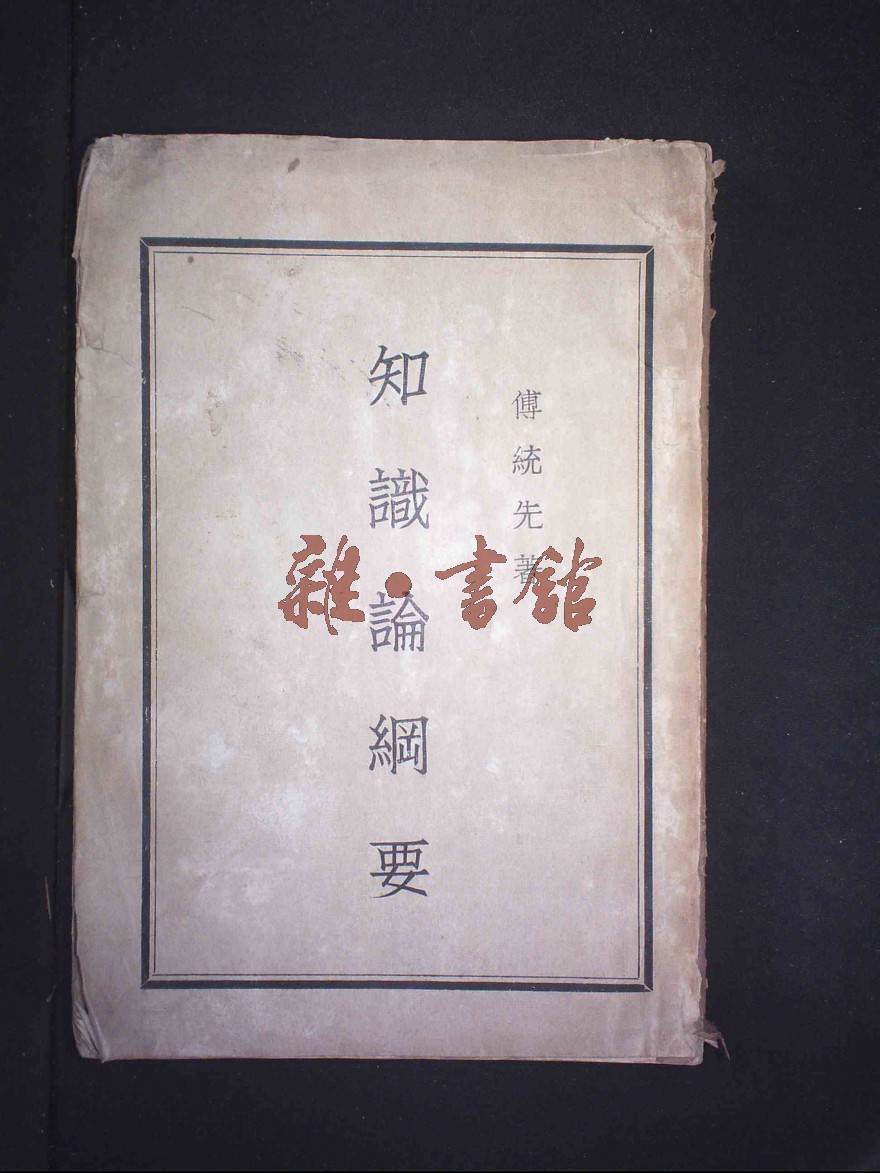 傅統先著
知識論綱要
雜·書館